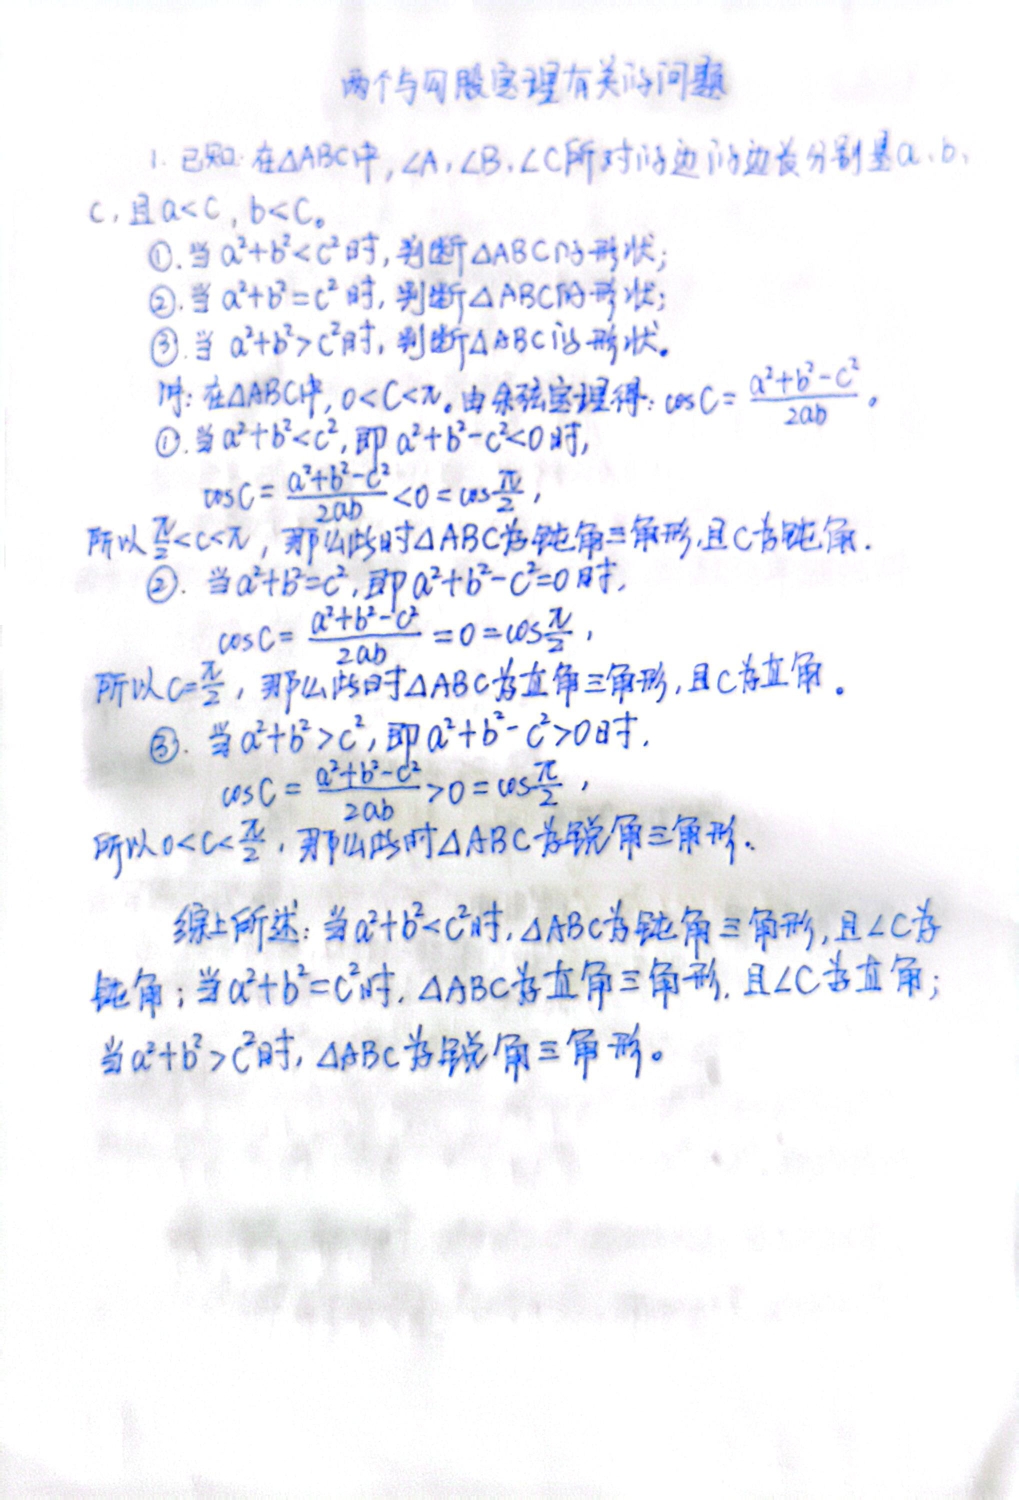 两个与勾股定理有关的问题
1. 已知:在△ABC中,∠A、∠B、∠C所对的边的边长分别是a、b、
c,且a<c,b<c。
①.当a²+b²<c²时,判断△ABC的形状;
②.当a²+b²=c²时,判断△ABC的形状;
③.当a²+b²>c²时,判断△ABC的形状。
解:在△ABC中,0<C<π。由余弦定理得:cosC=\frac{a²+b²-c²}{2ab}。
①.当a²+b²<c²,即a²+b²-c²<0时,
cosC=\frac{a²+b²-c²}{2ab}<0=cos\frac{π}{2},
所以\frac{π}{2}<C<π,那么此时△ABC为钝角三角形,且C为钝角.
②.当a²+b²=c²,即a²+b²-c²=0时,
cosC=\frac{a²+b²-c²}{2ab}=0=cos\frac{π}{2},
所以C=\frac{π}{2},那么此时△ABC为直角三角形,且C为直角。
③.当a²+b²>c²,即a²+b²-c²>0时,
cosC=\frac{a²+b²-c²}{2ab}>0=cos\frac{π}{2},
所以0<C<\frac{π}{2},那么此时△ABC为锐角三角形.
综上所述:当a²+b²<c²时,△ABC为钝角三角形,且∠C为
钝角;当a²+b²=c²时,△ABC为直角三角形,且∠C为直角;
当a²+b²>c²时,△ABC为锐角三角形。